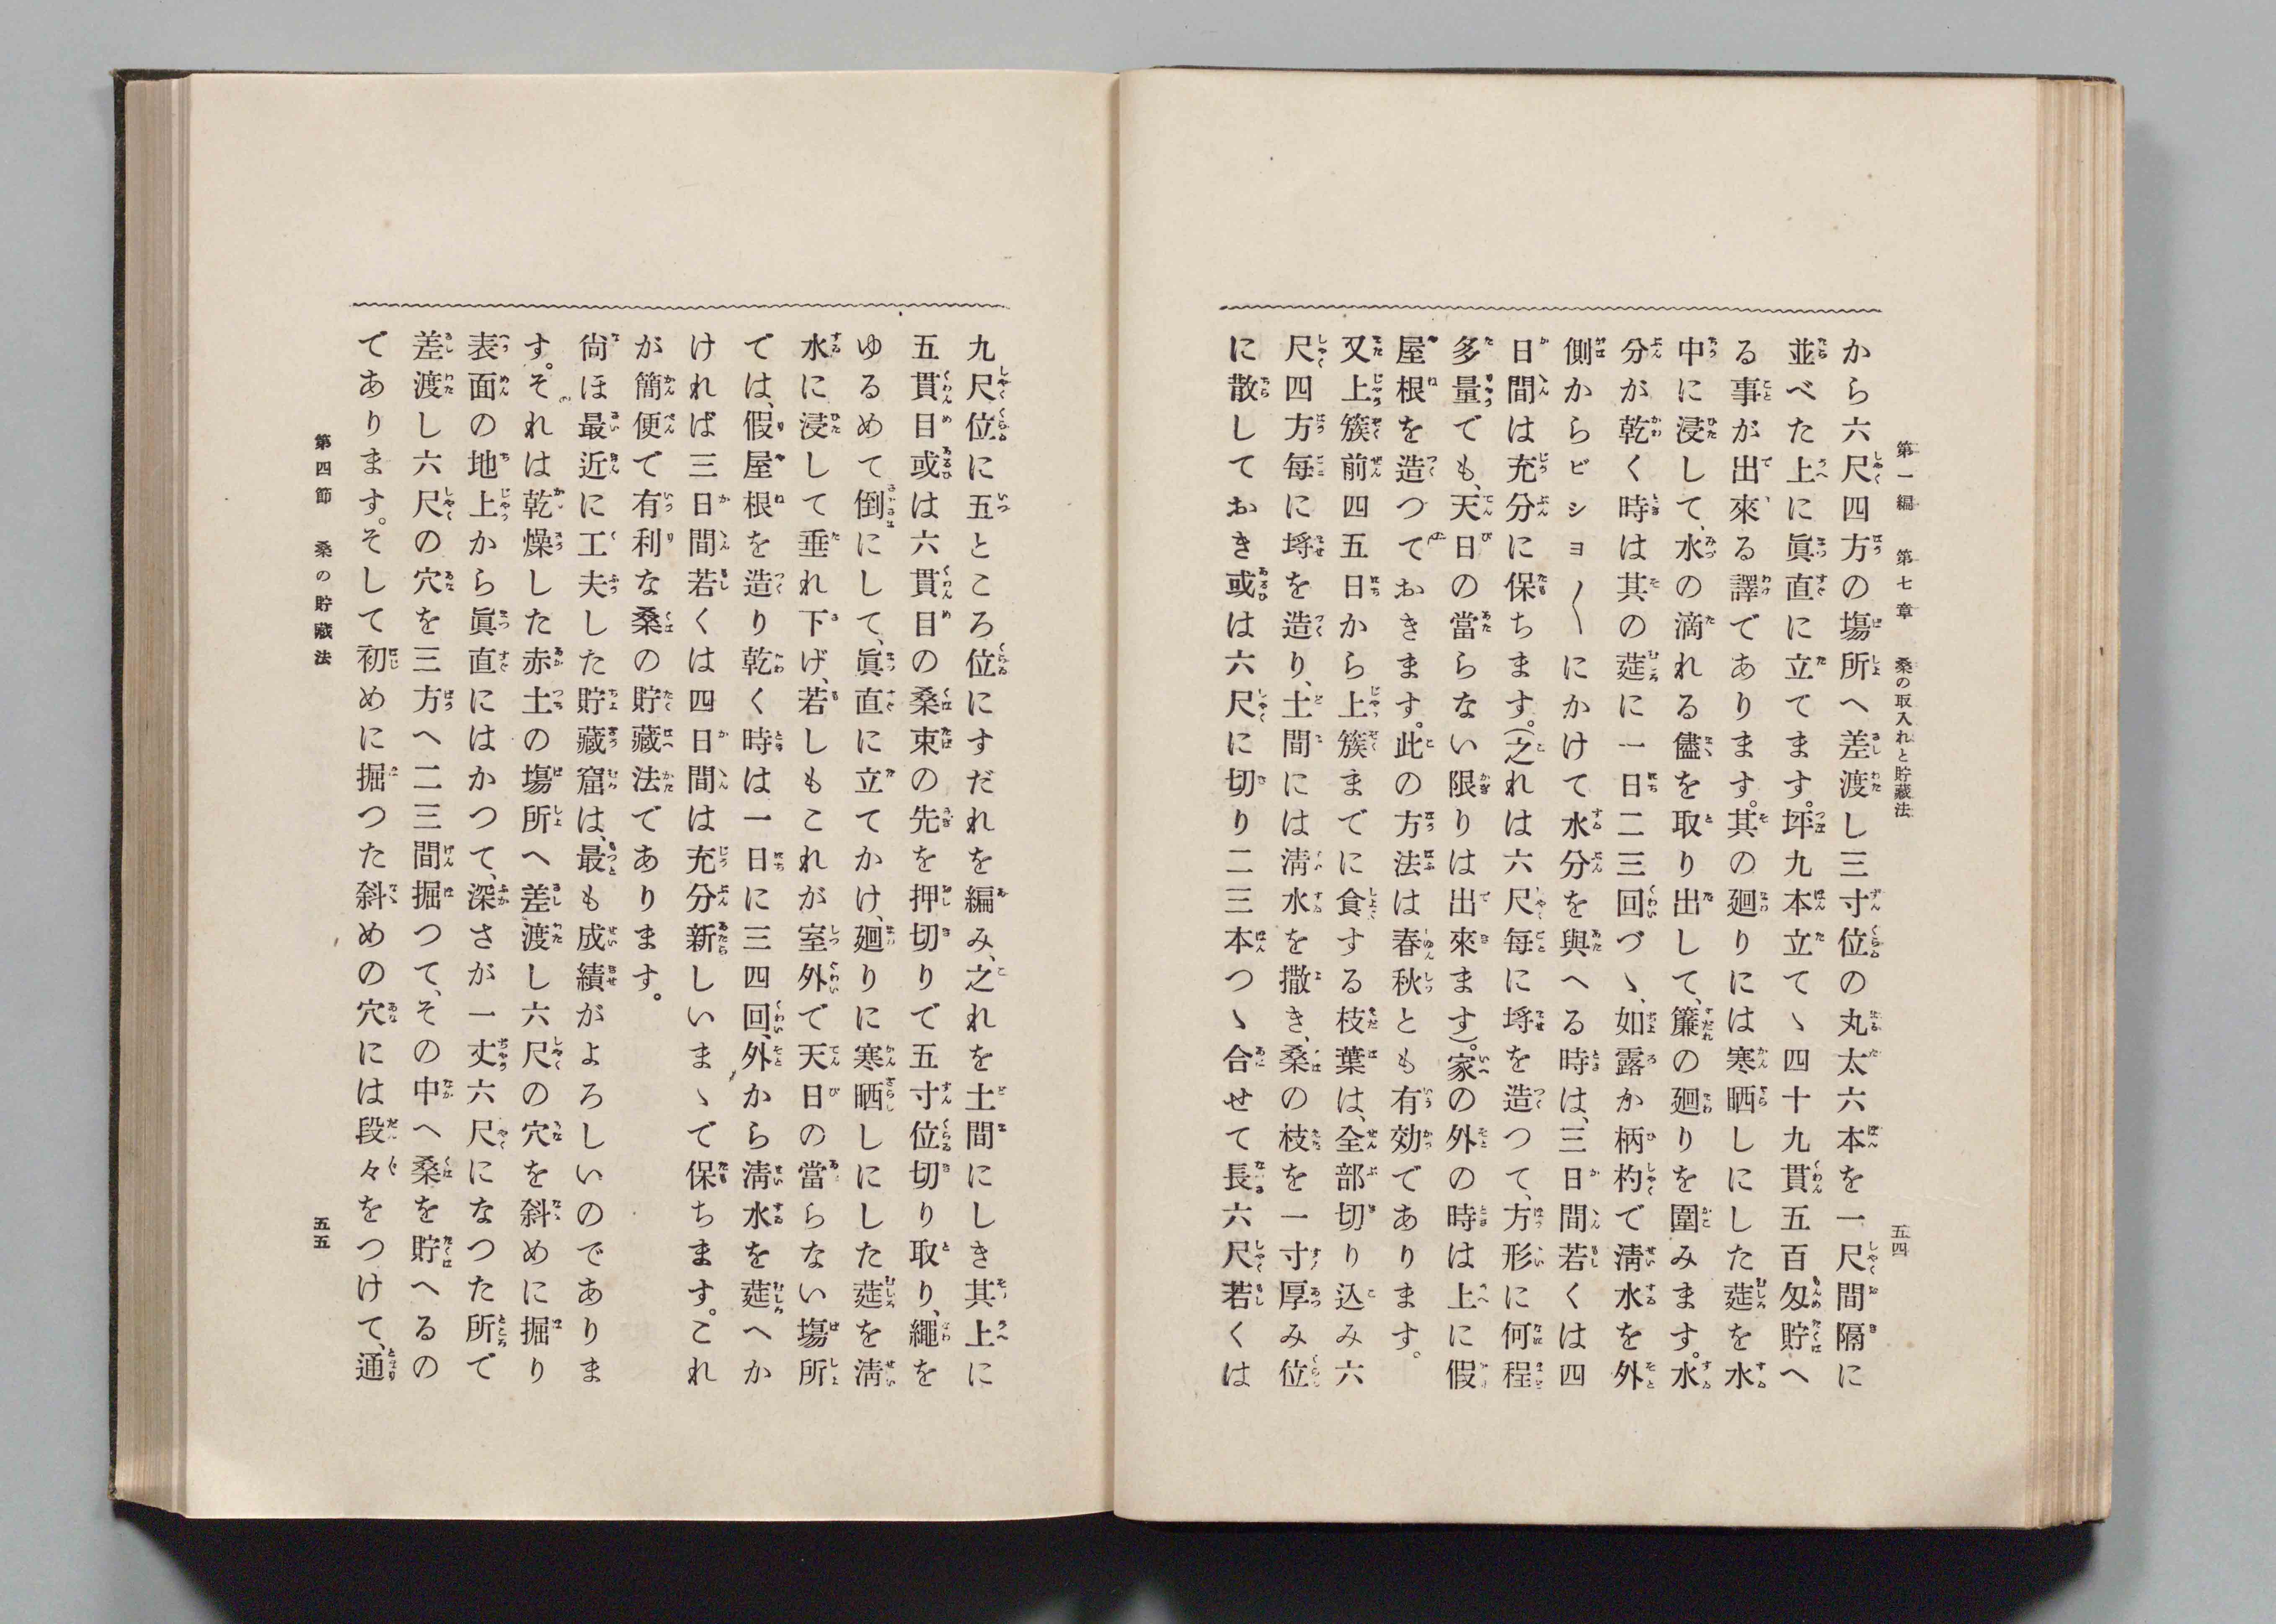 第一編　第七章　桑の取入れと貯藏法
五四
から六尺四方の塲所へ差渡し三寸位の丸太六本を一尺間隔に
並べた上に眞直に立てます。坪九本立てゝ四十九貫五百匁貯へ
る事が出來る譯であります。其の廻りには寒晒しにした莚を水
中に浸して、水の滴れる儘を取り出して、簾の廻りを圍みます。水
分が乾く時は其の莚に一日二三回づゝ、如露か柄杓で淸水を外
側からビショ〳〵にかけて水分を與へる時は、三日間若くは四
日間は充分に保ちます。(之れは六尺毎に埓を造つて、方形に何程
多量でも、天日の當らない限りは出來ます)。家の外の時は上に假
屋根を造つておきます。此の方法は春秋とも有効であります。
又上簇前四五日から上簇までに食する枝葉は、全部切り込み六
尺四方毎に埓を造り、土間には淸水を撒き、桑の枝を一寸厚み位
に散しておき或は六尺に切り二三本つゝ合せて長六尺若くは
九尺位に五ところ位にすだれを編み、之れを土間にしき其上に
五貫目或は六貫目の桑束の先を押切りで五寸位切り取り、繩を
ゆるめて倒にして、眞直に立てかけ、廻りに寒晒しにした莚を淸
水に浸して垂れ下げ、若しもこれが室外で天日の當らない塲所
では、假屋根を造り乾く時は一日に三四回、外から淸水を莚へか
ければ三日間若くは四日間は充分新しいまゝで保ちます。これ
が簡便で有利な桑の貯藏法であります。
尙ほ最近に工夫した貯藏窟は、最も成績がよろしいのでありま
す。それは乾燥した赤土の塲所へ差渡し六尺の穴を斜めに掘り
表面の地上から眞直にはかつて、深さが一丈六尺になつた所で
差渡し六尺の穴を三方へ二三間掘つて、その中へ桑を貯へるの
であります。そして初めに掘つた斜めの穴には段々をつけて、通
第四節　桑の貯藏法
五五